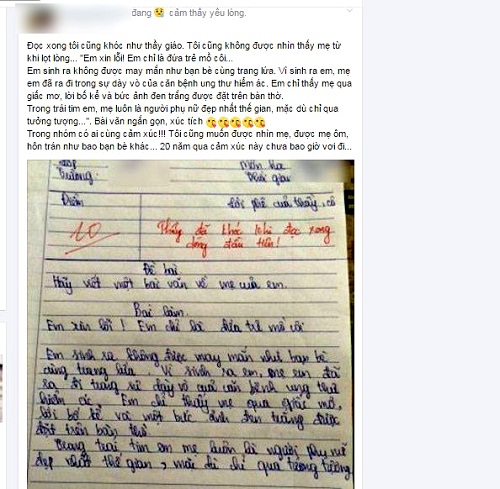 đang cảm thấy yêu lòng.
Đọc xong tôi cũng khóc như thầy giáo. Tôi cũng không được nhìn thấy mẹ từ
khi lọt lòng... "Em xin lỗi! Em chỉ là đứa trẻ mồ côi...
Em sinh ra không được may mắn như bạn bè cùng trang lứa. Vì sinh ra em, mẹ
em đã ra đi trong sự dày vò của căn bệnh ung thư hiểm ác. Em chỉ thấy mẹ qua
giấc mơ, lời bố kể và bức ảnh đen trắng được đặt trên bàn thờ.
Trong trái tim em, mẹ luôn là người phụ nữ đẹp nhất thế gian, mặc dù chỉ qua
tưởng tượng...". Bài văn ngắn gọn, xúc tích
Trong nhóm có ai cùng cảm xúc!!! Tôi cũng muốn được nhìn mẹ, được mẹ ôm,
hôn trán như bao bạn bè khác... 20 năm qua cảm xúc này chưa bao giờ vơi đi...
Lớp
Trường
Thời gian
Điểm
Lời phê của thầy, cô
10
Thầy đã khóc khi đọc xong
dòng đầu tiên!
Đề bài
Hãy viết một bài văn về mẹ của em.
Bài làm.
Em xin lỗi! Em chỉ là đứa trẻ mồ côi
Em sinh ra không được may mắn như bạn bè
cùng trang lứa. Vì sinh ra em, mẹ em đã
ra đi trong sự dày vò của căn bệnh ung thư
hiểm ác. Em chỉ thấy mẹ qua giấc mơ,
lời bố kể và một bức ảnh đen trắng được
đặt trên bàn thờ.
Trong trái tim em mẹ luôn là người phụ nữ
đẹp nhất thế gian, mặc dù chỉ qua tưởng tượng